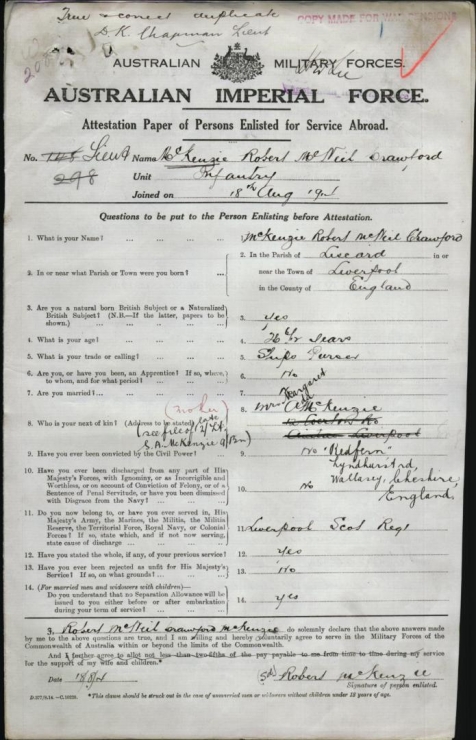 True & correct duplicate
D. K. Chapman Lieut
COPY MADE FOR
AUSTRALIAN MILITARY FORCES.
AUSTRALIAN IMPERIAL FORCE.
Attestation Paper of Persons Enlisted for Service Abroad.
No. Lieut Name McKenzie Robert McNeil Crawford
298 Unit Infantry
Joined on 18th Aug 1914
Questions to be put to the Person Enlisting before Attestation.
1. What is your Name? ... ... ... 1. McKenzie Robert McNeil Crawford
2. In or near what Parish or Town were you born? ... 2. In the Parish of Liscard in or
near the Town of Liverpool
in the County of England
3. Are you a natural born British Subject or a Naturalized
British Subject? (N.B.—If the latter, papers to be
shown.) ... ... ... 3. Yes
4. What is your age? ... ... ... 4. 26 years
5. What is your trade or calling? ... ... 5. Ships Purser
6. Are you, or have you been, an Apprentice? If so, where,
to whom, and for what period? ... ... 6. No
7. Are you married? ... ... ... 7.
8. Who is your next of kin? (Address to be stated) 8. Mrs Margaret McKenzie
(mother)
(see file of late 2/Lt.
S.A. McKenzie 9/Bn)
Liverpool
9. Have you ever been convicted by the Civil Power? 9. No
"Redfern"
Lyndhurst rd,
Wallasey, Cheshire,
England.
10. Have you ever been discharged from any part of His
Majesty's Forces, with Ignominy, or as Incorrigible and
Worthless, or on account of Conviction of Felony, or of a
Sentence of Penal Servitude, or have you been dismissed
with Disgrace from the Navy? ... 10. No
11. Do you now belong to, or have you ever served in, His
Majesty's Army, the Marines, the Militia, the Militia
Reserve, the Territorial Force, Royal Navy, or Colonial
Forces? If so, state which, and if not now serving,
state cause of discharge ... ... 11. Liverpool Scot Regt
12. Have you stated the whole, if any, of your previous service? 12. Yes
13. Have you ever been rejected as unfit for His Majesty's
Service? If so, on what grounds? ... 13. No
14. (For married men and widowers with children)—
Do you understand that no Separation Allowance will be
issued to you either before or after embarkation
during your term of service? ... 14. yes
I, Robert McNeil Crawford McKenzie do solemnly declare that the above answers made
by me to the above questions are true, and I am willing and hereby voluntarily agree to serve in the Military Forces of the
Commonwealth of Australia within or beyond the limits of the Commonwealth.
And I further agree to allot not less than two-fifths of the pay payable to me from time to time during my service
for the support of my wife and children.*
Date 18/8/14 Sd Robert McKenzie
Signature of person enlisted.
*This clause should be struck out in the case of unmarried men or widowers without children under 18 years of age.